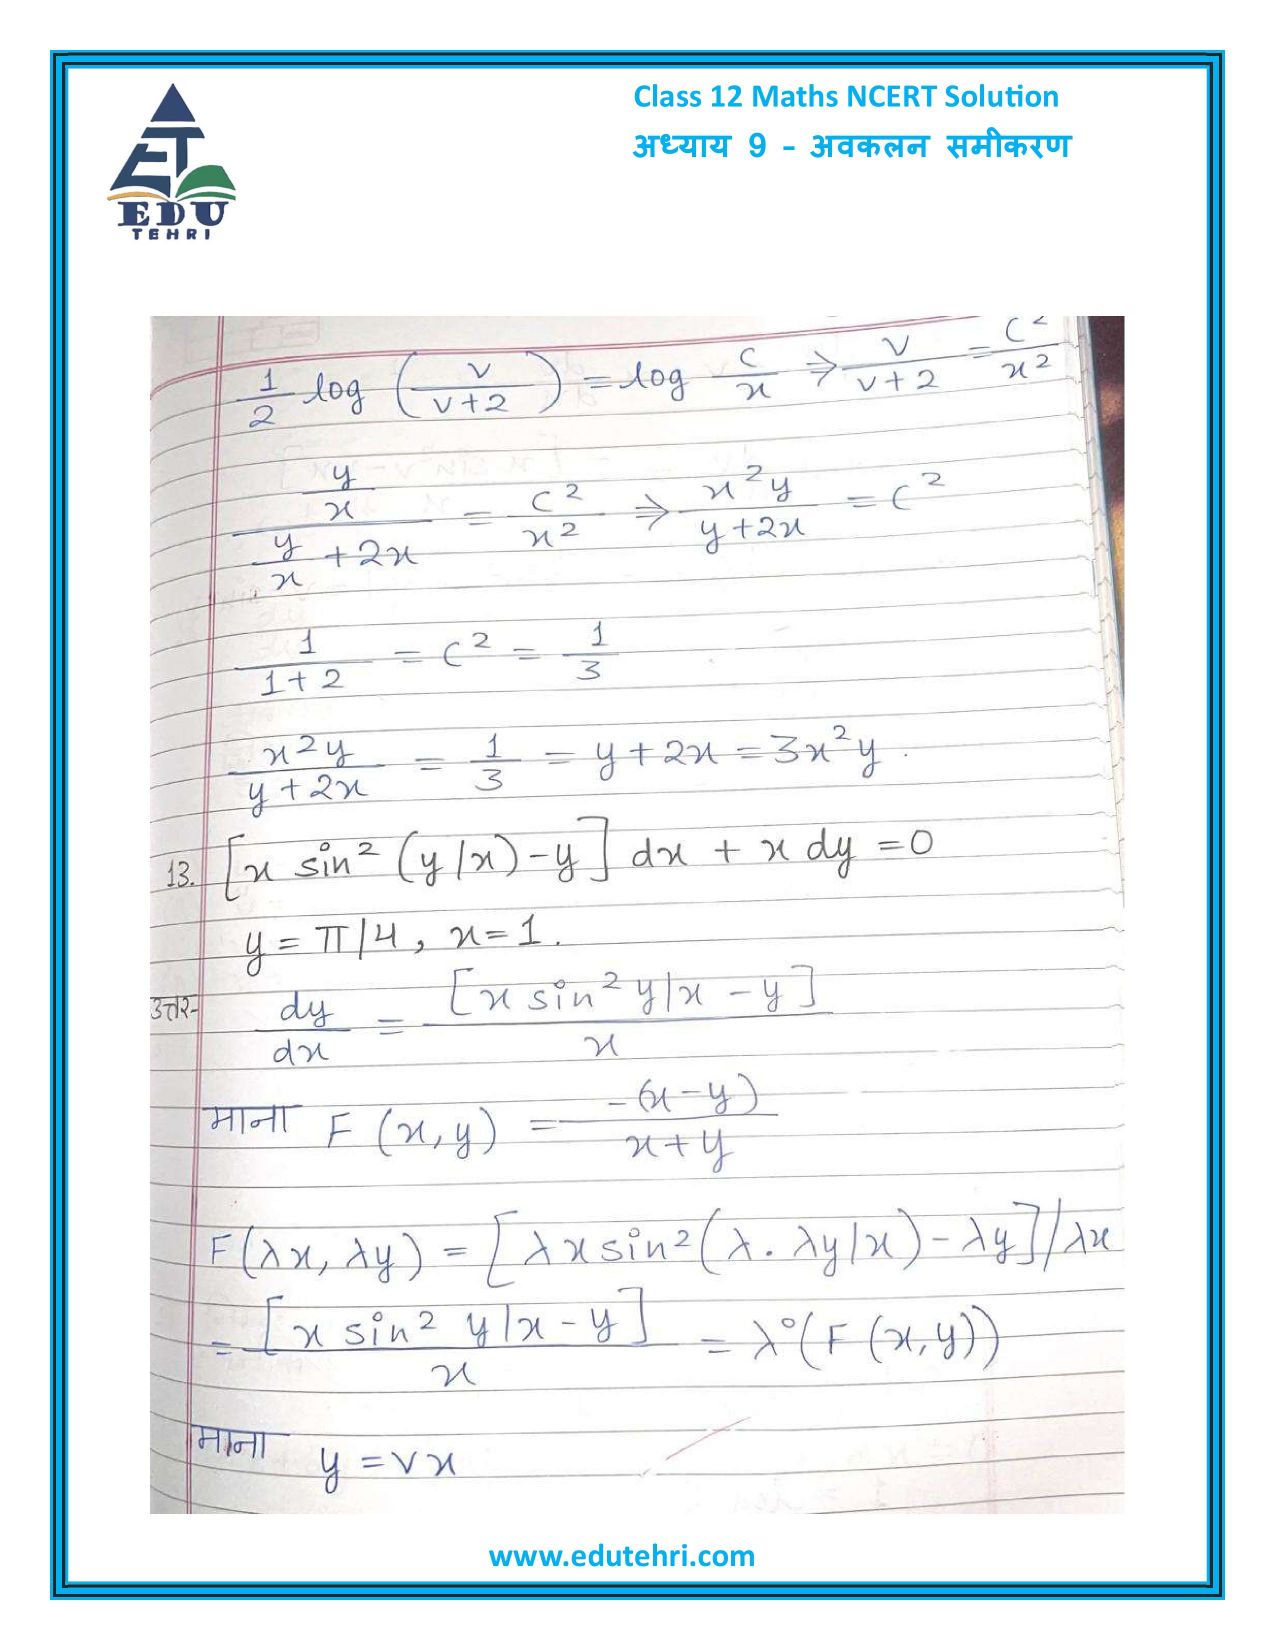 Class 12 Maths NCERT Solution
अध्याय 9 - अवकलन समीकरण
EDU
TEHRI
1/2 log (v/(v+2)) = log c/x ⇒ v/(v+2) = c²/x²
(y/x)/(y/x + 2x) = c²/x² ⇒ x²y/(y+2x) = c²
1/(1+2) = c² = 1/3
x²y/(y+2x) = 1/3 = y+2x = 3x²y.
13. [x sin² (y/x) - y] dx + x dy = 0
y = π/4, x = 1.
उत्तर- dy/dx = [x sin² y/x - y]/x
माना F(x, y) = -(x-y)/(x+y)
F(λx, λy) = [λx sin² (λ. λy/x) - λy]/λx
= [x sin² y/x - y]/x = λ°(F(x, y))
माना y = vx
www.edutehri.com